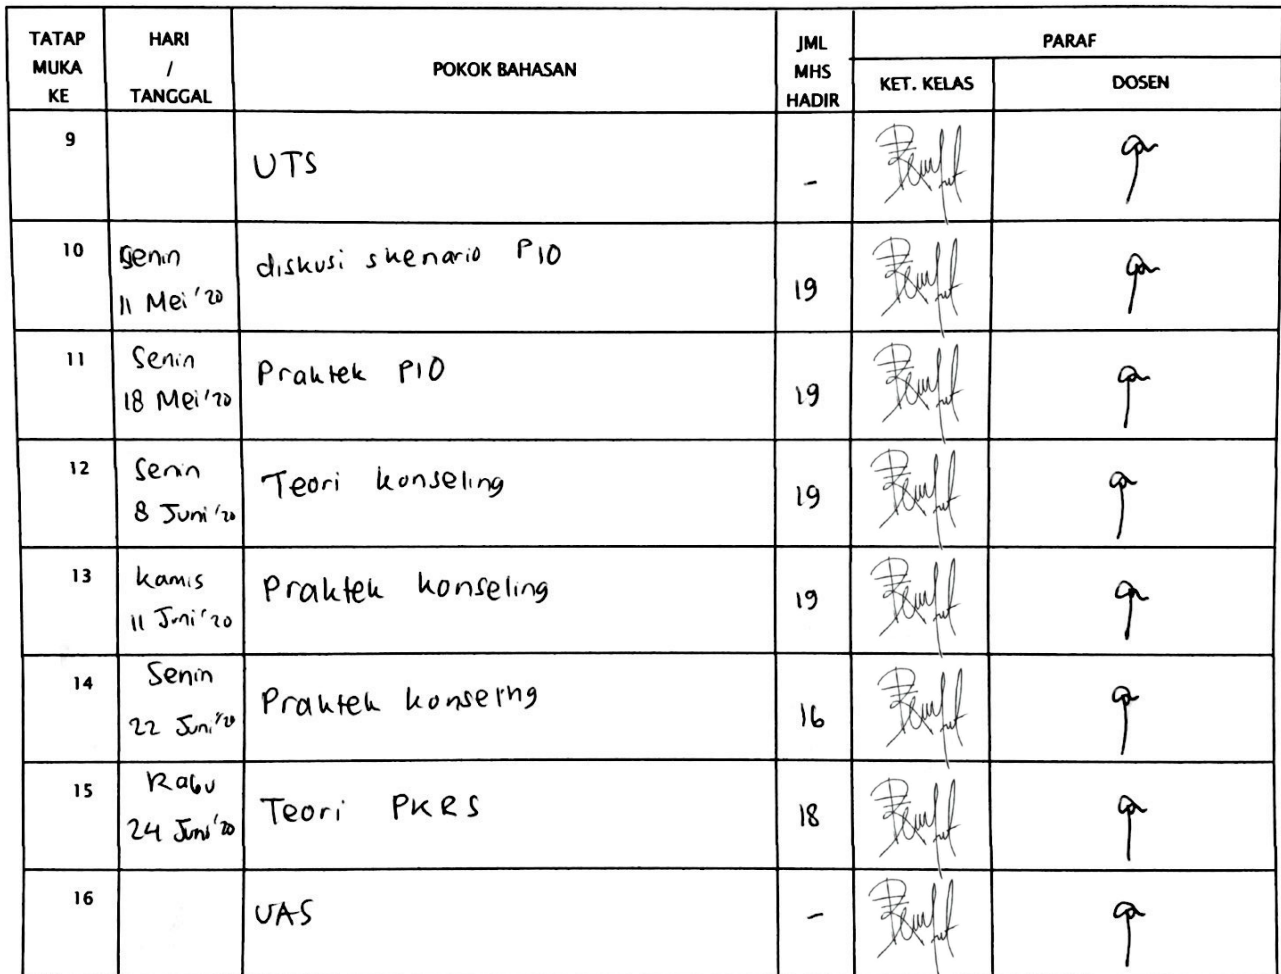 TATAP MUKA KE | HARI / TANGGAL | POKOK BAHASAN | JML MHS HADIR | PARAF
KET. KELAS | DOSEN
9 | UTS | -
10 | Senin 11 Mei '20 | diskusi skenario PIO | 19
11 | Senin 18 Mei '20 | Praktek PIO | 19
12 | Senin 8 Juni '20 | Teori konseling | 19
13 | Kamis 11 Juni '20 | Praktek konseling | 19
14 | Senin 22 Juni '20 | Praktek konseling | 16
15 | Rabu 24 Juni '20 | Teori PKRS | 18
16 | UAS | -